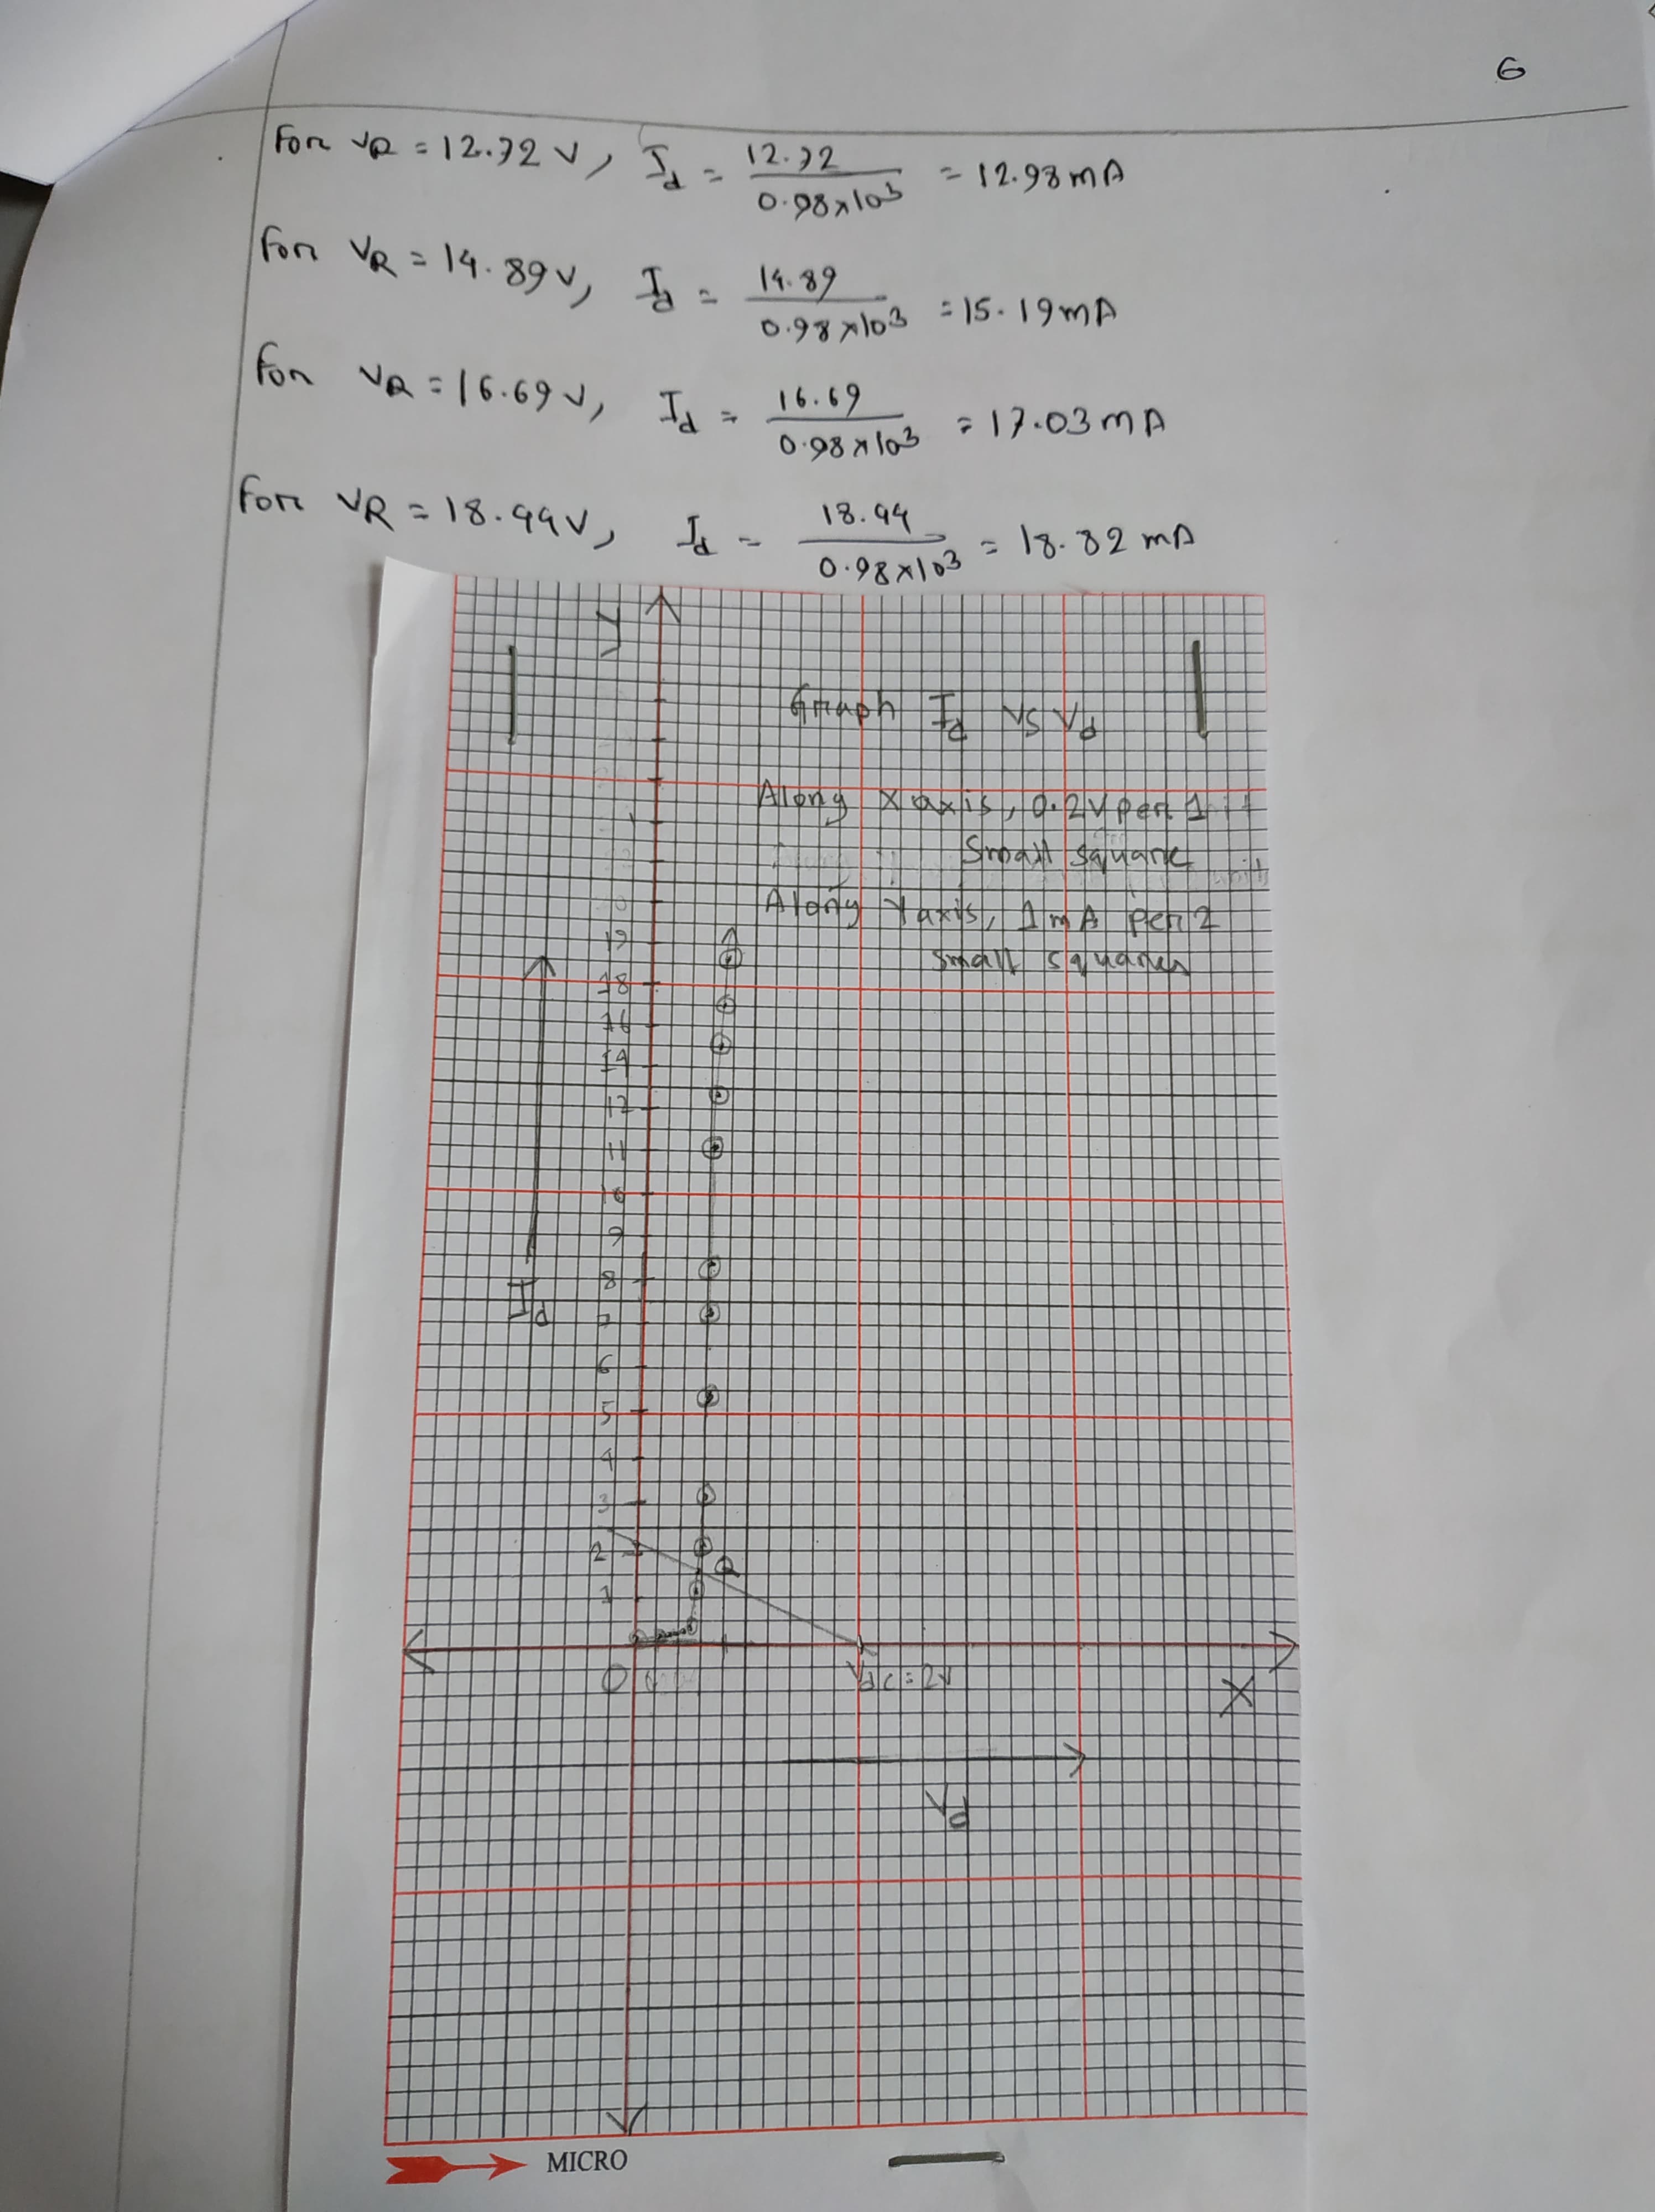 6
For VR = 12.72 V, Id = 12.72 / 0.98×10³ = 12.98 mA
For VR = 14.89 V, Id = 14.89 / 0.98×10³ = 15.19 mA
For VR = 16.69 V, Id = 16.69 / 0.98×10³ = 17.03 mA
For VR = 18.44 V, Id = 18.44 / 0.98×10³ = 18.82 mA
Y
Graph Id vs Vd
Along X axis, 0.2V per 1
small square
Along Y axis, 1mA per 2
small squares
19
18
16
14
12
11
10
9
8
Id
7
6
5
4
3
2
Q
1
O
Vdc = 2V
X
Vd
MICRO